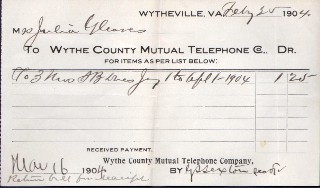 WYTHEVILLE, VA. Feby 25 1904
Mrs Julia Gleaves
TO WYTHE COUNTY MUTUAL TELEPHONE Co., DR.
FOR ITEMS AS PER LIST BELOW:
To 3 Mos Jany 1 to Apl 1-1904 1 25
RECEIVED PAYMENT,
Wythe County Mutual Telephone Company,
Mar 16 1904 BY Sexton
Return bill for receipt